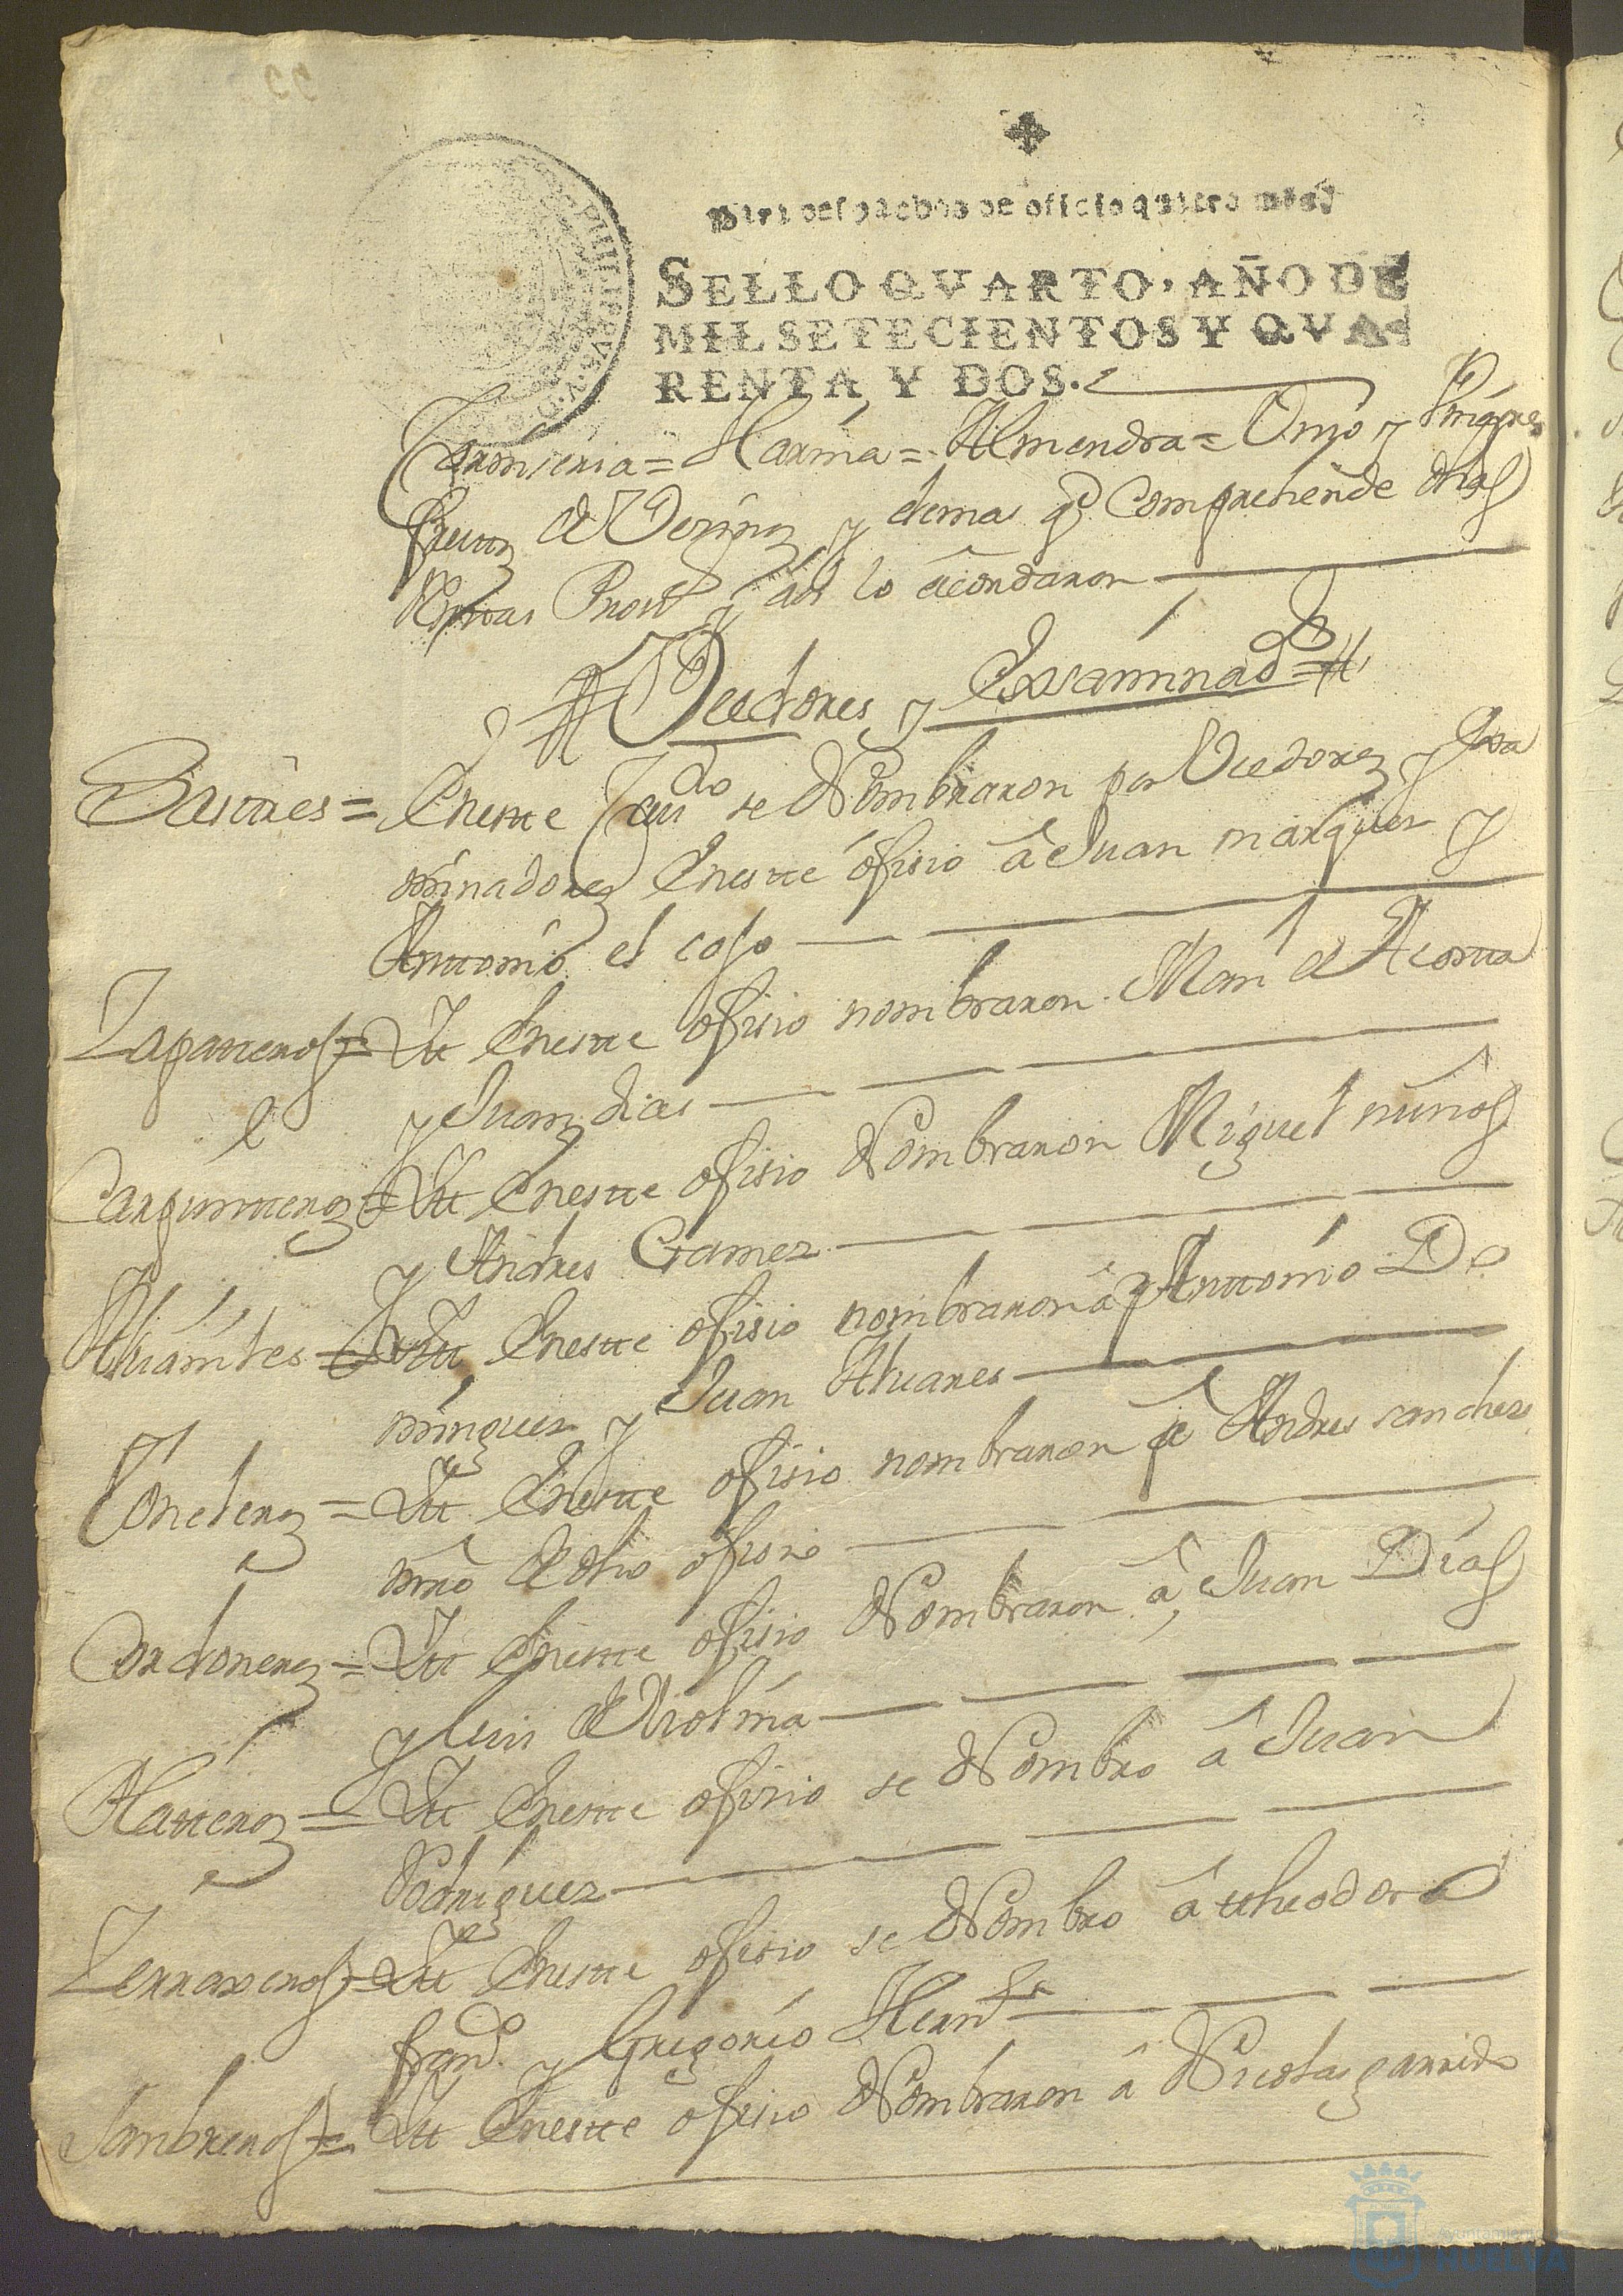 Para despachos de oficio quatro mrs.
SELLO QVARTO, AÑO DE
MIL SETECIENTOS Y QVA-
RENTA Y DOS.
Carniseria = Harina = Almendra = Trigo y
frutta de Vezinos y demas q.e Comprehende dhas
Renttas y asi lo acordaron
Veedores y Exsaminad.es
Sastres = En estte Cau.do se Nombraron por Veedores y Exsa
minadores En estte ofisio â Juan marques y
Anttonio el coso
Zapatteros = Yt En estte ofisio nombraron Man.l de Acostta
y Juan dias
Carpintteros = Yt En estte ofisio Nombraron Miguel nuños
y Andres Gamez
Aluañiles = Yt En estte ofisio nombraron â Anttonio Do
minguez y Juan Aluares
Toneleros = Yt En estte ofisio nombraron â Andres sanches
mro de dho ofisio
Cordoneros = Yt En estte ofisio Nombraron â Juan Dias
y Luis de Molina
Platteros = Yt En estte ofisio se Nombro â Juan
Rodriguez
Zerraxeros = Yt En estte ofisio se Nombro â theodoro
fran.co y Gregorio Hern.s
Sombreros = Yt En estte ofisio Nombraron â Nicolas garrido
Ayuntamiento de
HUELVA